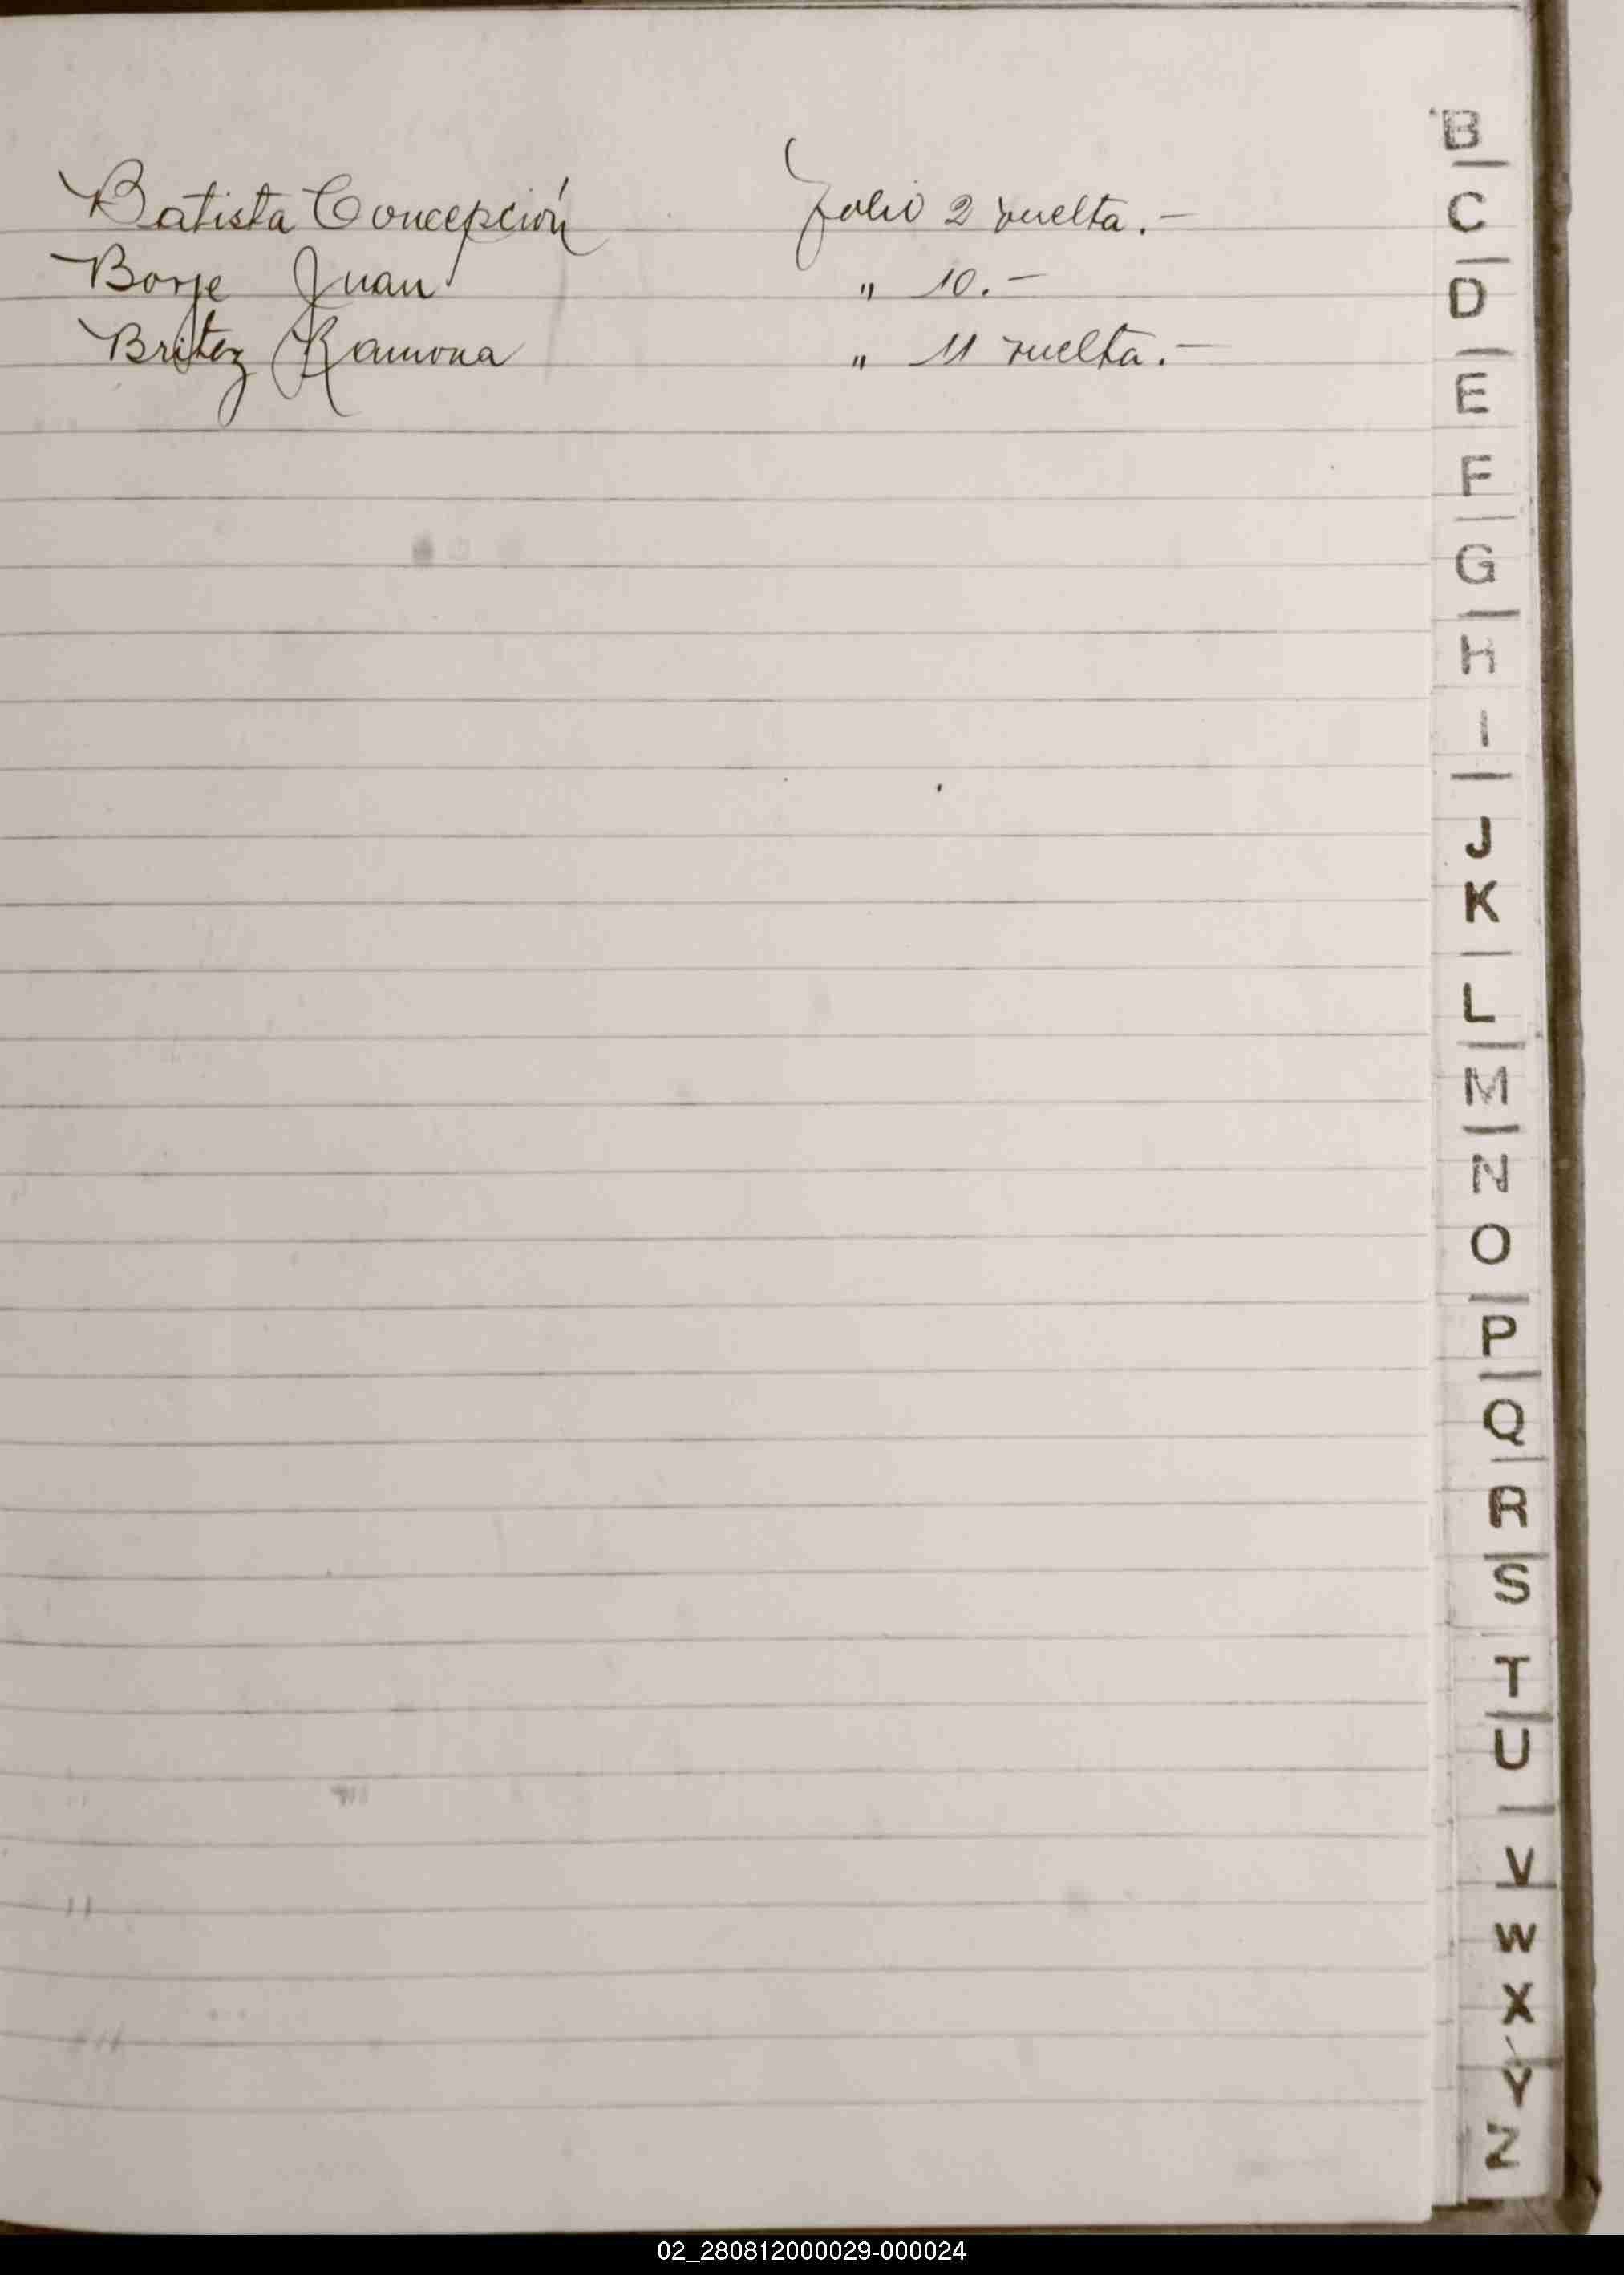 Batista Concepción Folio 2 vuelta.—
Borje Juan " 10.—
Britez Ramona " 11 vuelta.—
B
C
D
E
F
G
H
I
J
K
L
M
N
O
P
Q
R
S
T
U
V
W
X
Y
Z
02_280812000029-000024